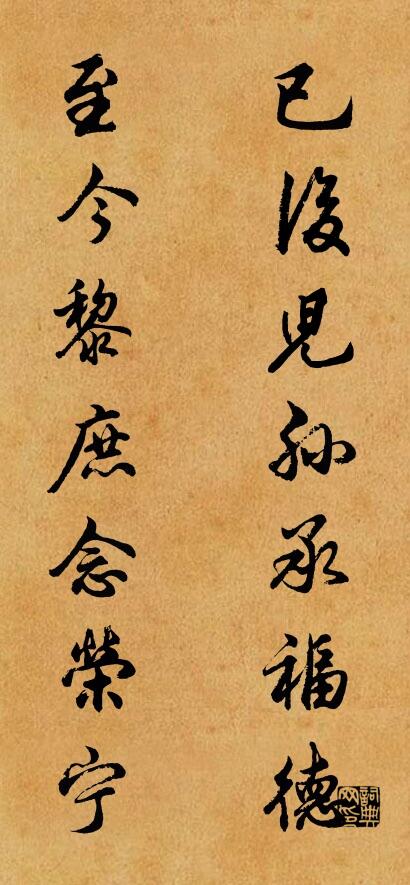 已後兒孫承福德
至今黎庶念榮宁
詞典网印